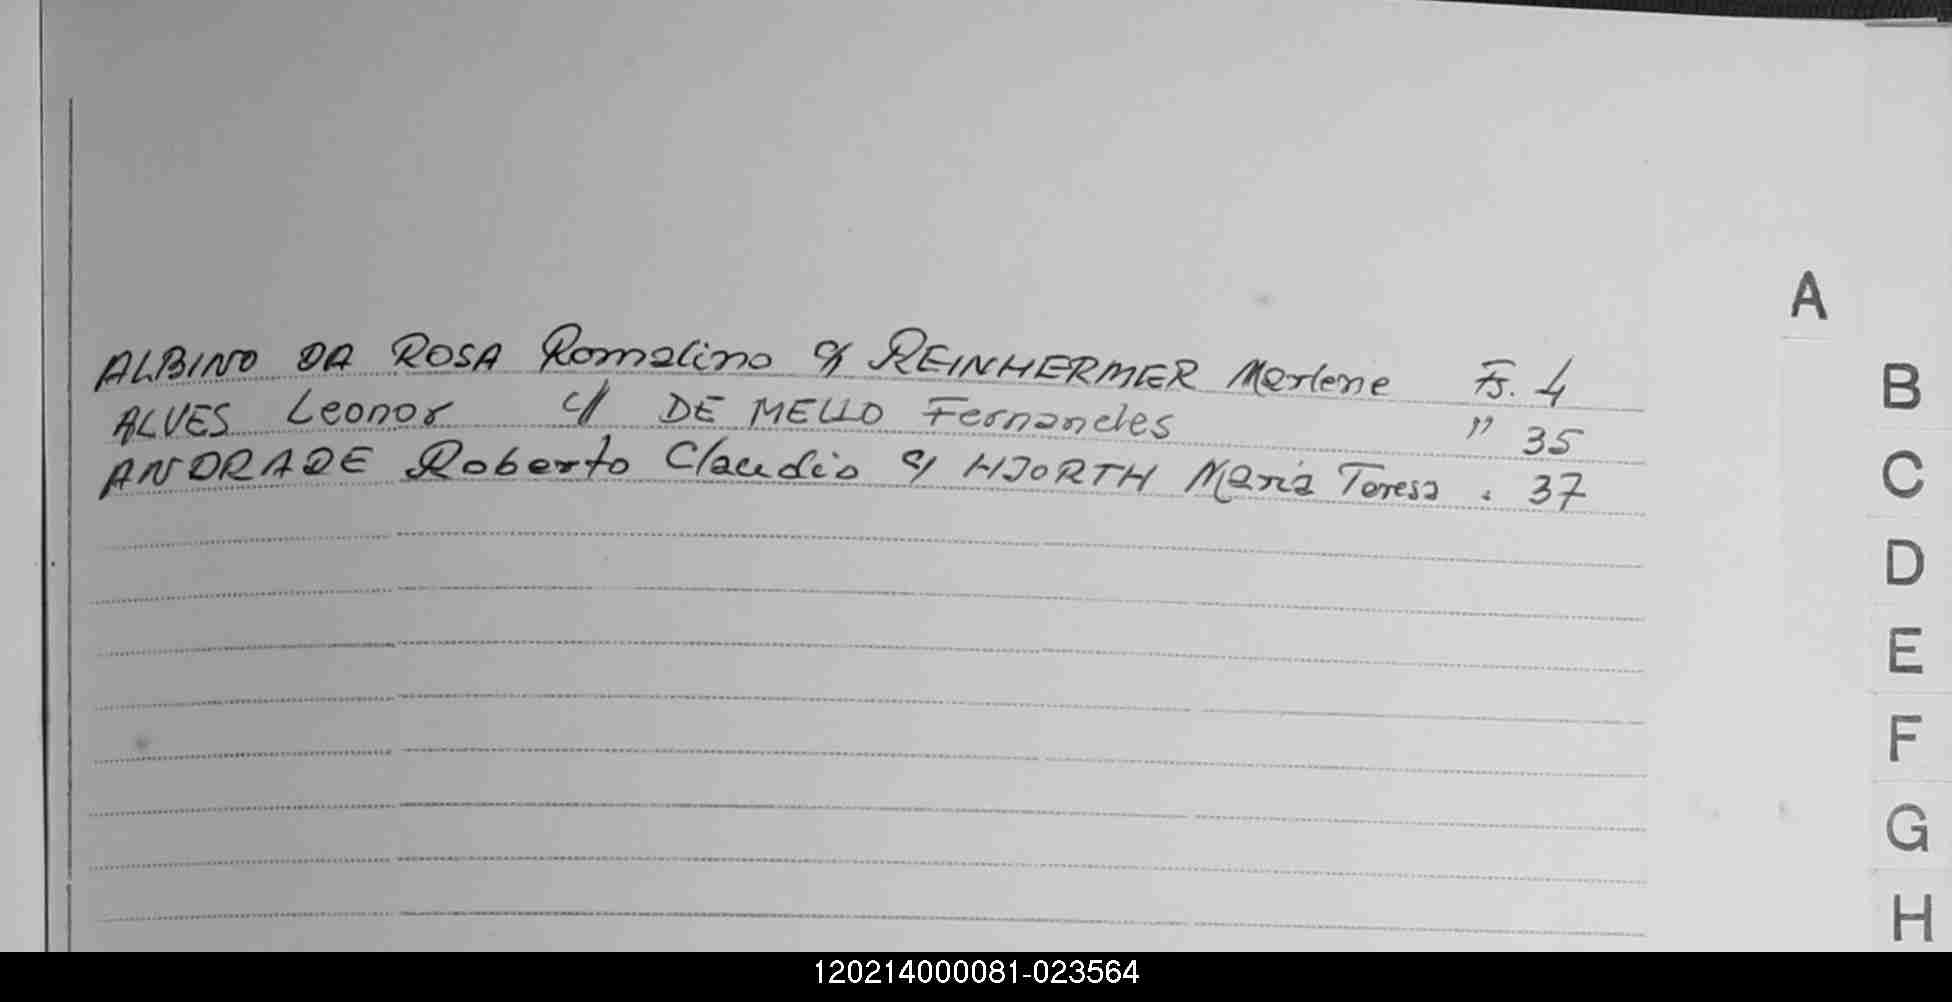 A
ALBINO DA ROSA Romalino c/ REINHERMER Marlene Fs. 4
ALVES Leonor c/ DE MELLO Fernandes " 35
ANDRADE Roberto Claudio c/ HJORTH Maria Teresa . 37
B
C
D
E
F
G
H
120214000081-023564